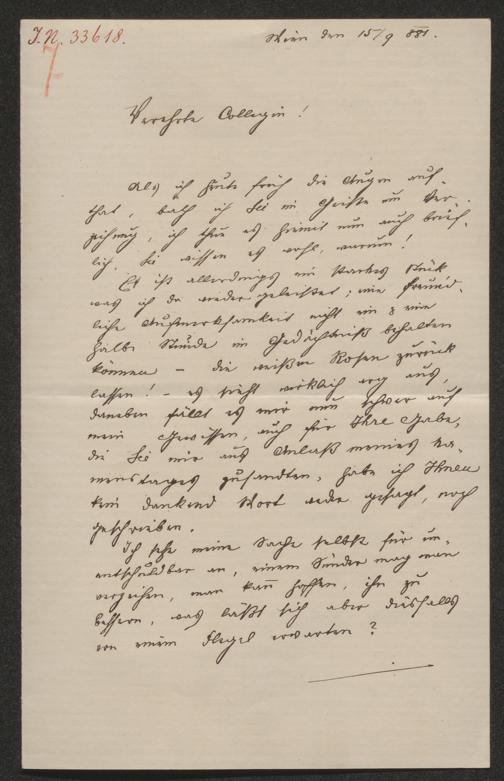 I.N. 33618.
Wien den 15/9 881.
Verehrte Collegin!
Als ich heute früh die Augen auf-
that, bath ich Sie im Geiste um Ver-
zeihung, ich thue es hiemit nun auch brief-
lich. Sie wissen es wohl, warum!
Es ist allerdings ein starkes Stück
was ich da wieder geleistet; eine freund-
liche Aufmerksamkeit nicht ein e eine
halbe Stunde im Gedächtniß behalten
können – die weißen Rosen zurück
lassen! – es sieht wirklich arg aus,
daneben fällt es mir nun schwer auf
mein Gewissen, auch für Ihre Gabe,
die Sie mir aus Anlaß meines Na-
menstages zusandten, habe ich Ihnen
kein dankend Wort weder gesagt, noch
geschrieben.
Ich sehe meine Sache selbst für un-
entschuldbar an, einem Sünder mag man
verzeihen, man kann hoffen, ihn zu
bessern, was läßt sich aber diesfalls
von einem Flegel erwarten?